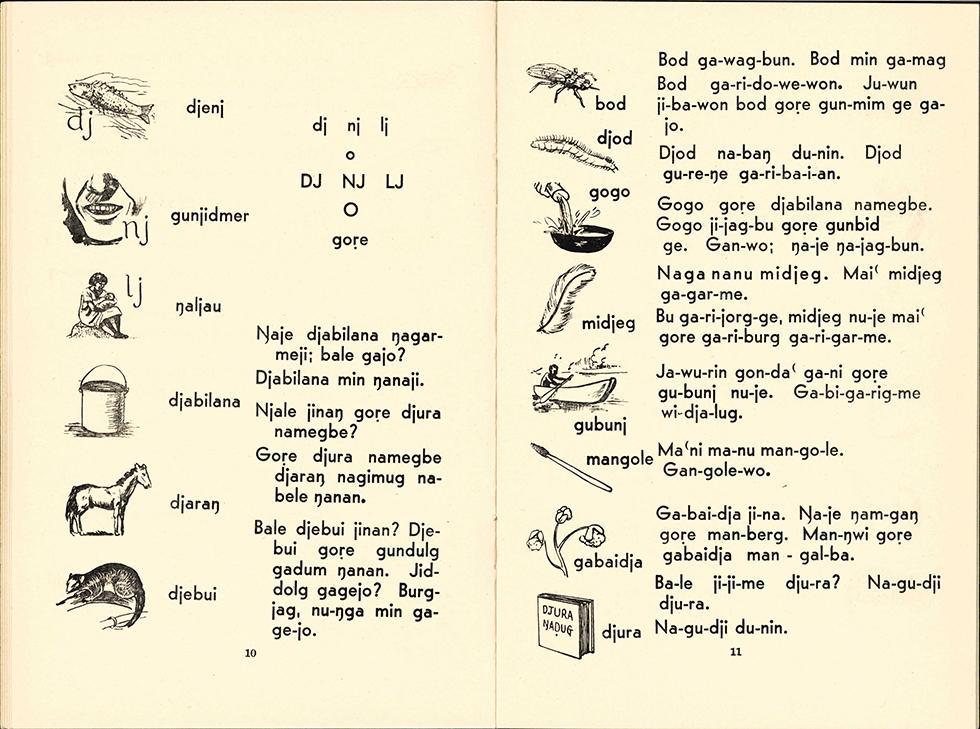 dj
djenj
nj
gunjidmer
lj
ŋaljau
djabilana
djaraŋ
djebui
dj nj lj
o
DJ NJ LJ
O
goṛe
Ŋaje djabilana ŋagar-
meji; bale gajo?
Djabilana min ŋanaji.
Njale jinaŋ goṛe djura
namegbe?
Goṛe djura namegbe
djaraŋ nagimug na-
bele ŋanan.
Bale djebui jinan? Dje-
bui goṛe gundulg
gadum ŋanan. Jid-
dolg gagejo? Burg-
jag, nu-ŋga min ga-
ge-jo.
10
bod
Bod ga-wag-bun. Bod min ga-mag
Bod ga-ri-do-we-won. Ju-wun
ji-ba-won bod goṛe gun-mim ge ga-
jo.
djod
Djod na-baŋ du-nin. Djod
gu-re-ŋe ga-ri-ba-i-an.
gogo
Gogo goṛe djabilana namegbe.
Gogo ji-jag-bu goṛe gunbid
ge. Gan-wo; ŋa-je ŋa-jag-bun.
midjeg
Naga nanu midjeg. Maiʿ midjeg
ga-gar-me.
Bu ga-ri-jorg-ge, midjeg nu-je maiʿ
gore ga-ri-burg ga-ri-gar-me.
gubunj
Ja-wu-rin gon-daʿ ga-ni goṛe
gu-bunj nu-je. Ga-bi-ga-rig-me
wi-dja-lug.
mangole
Maʿni ma-nu man-go-le.
Gan-gole-wo.
gabaidja
Ga-bai-dja ji-na. Ŋa-je ŋam-gaŋ
goṛe man-berg. Man-ŋwi goṛe
gabaidja man - gal-ba.
DJURA
ŊADUG
djura
Ba-le ji-ji-me dju-ra? Na-gu-dji
dju-ra.
Na-gu-dji du-nin.
11